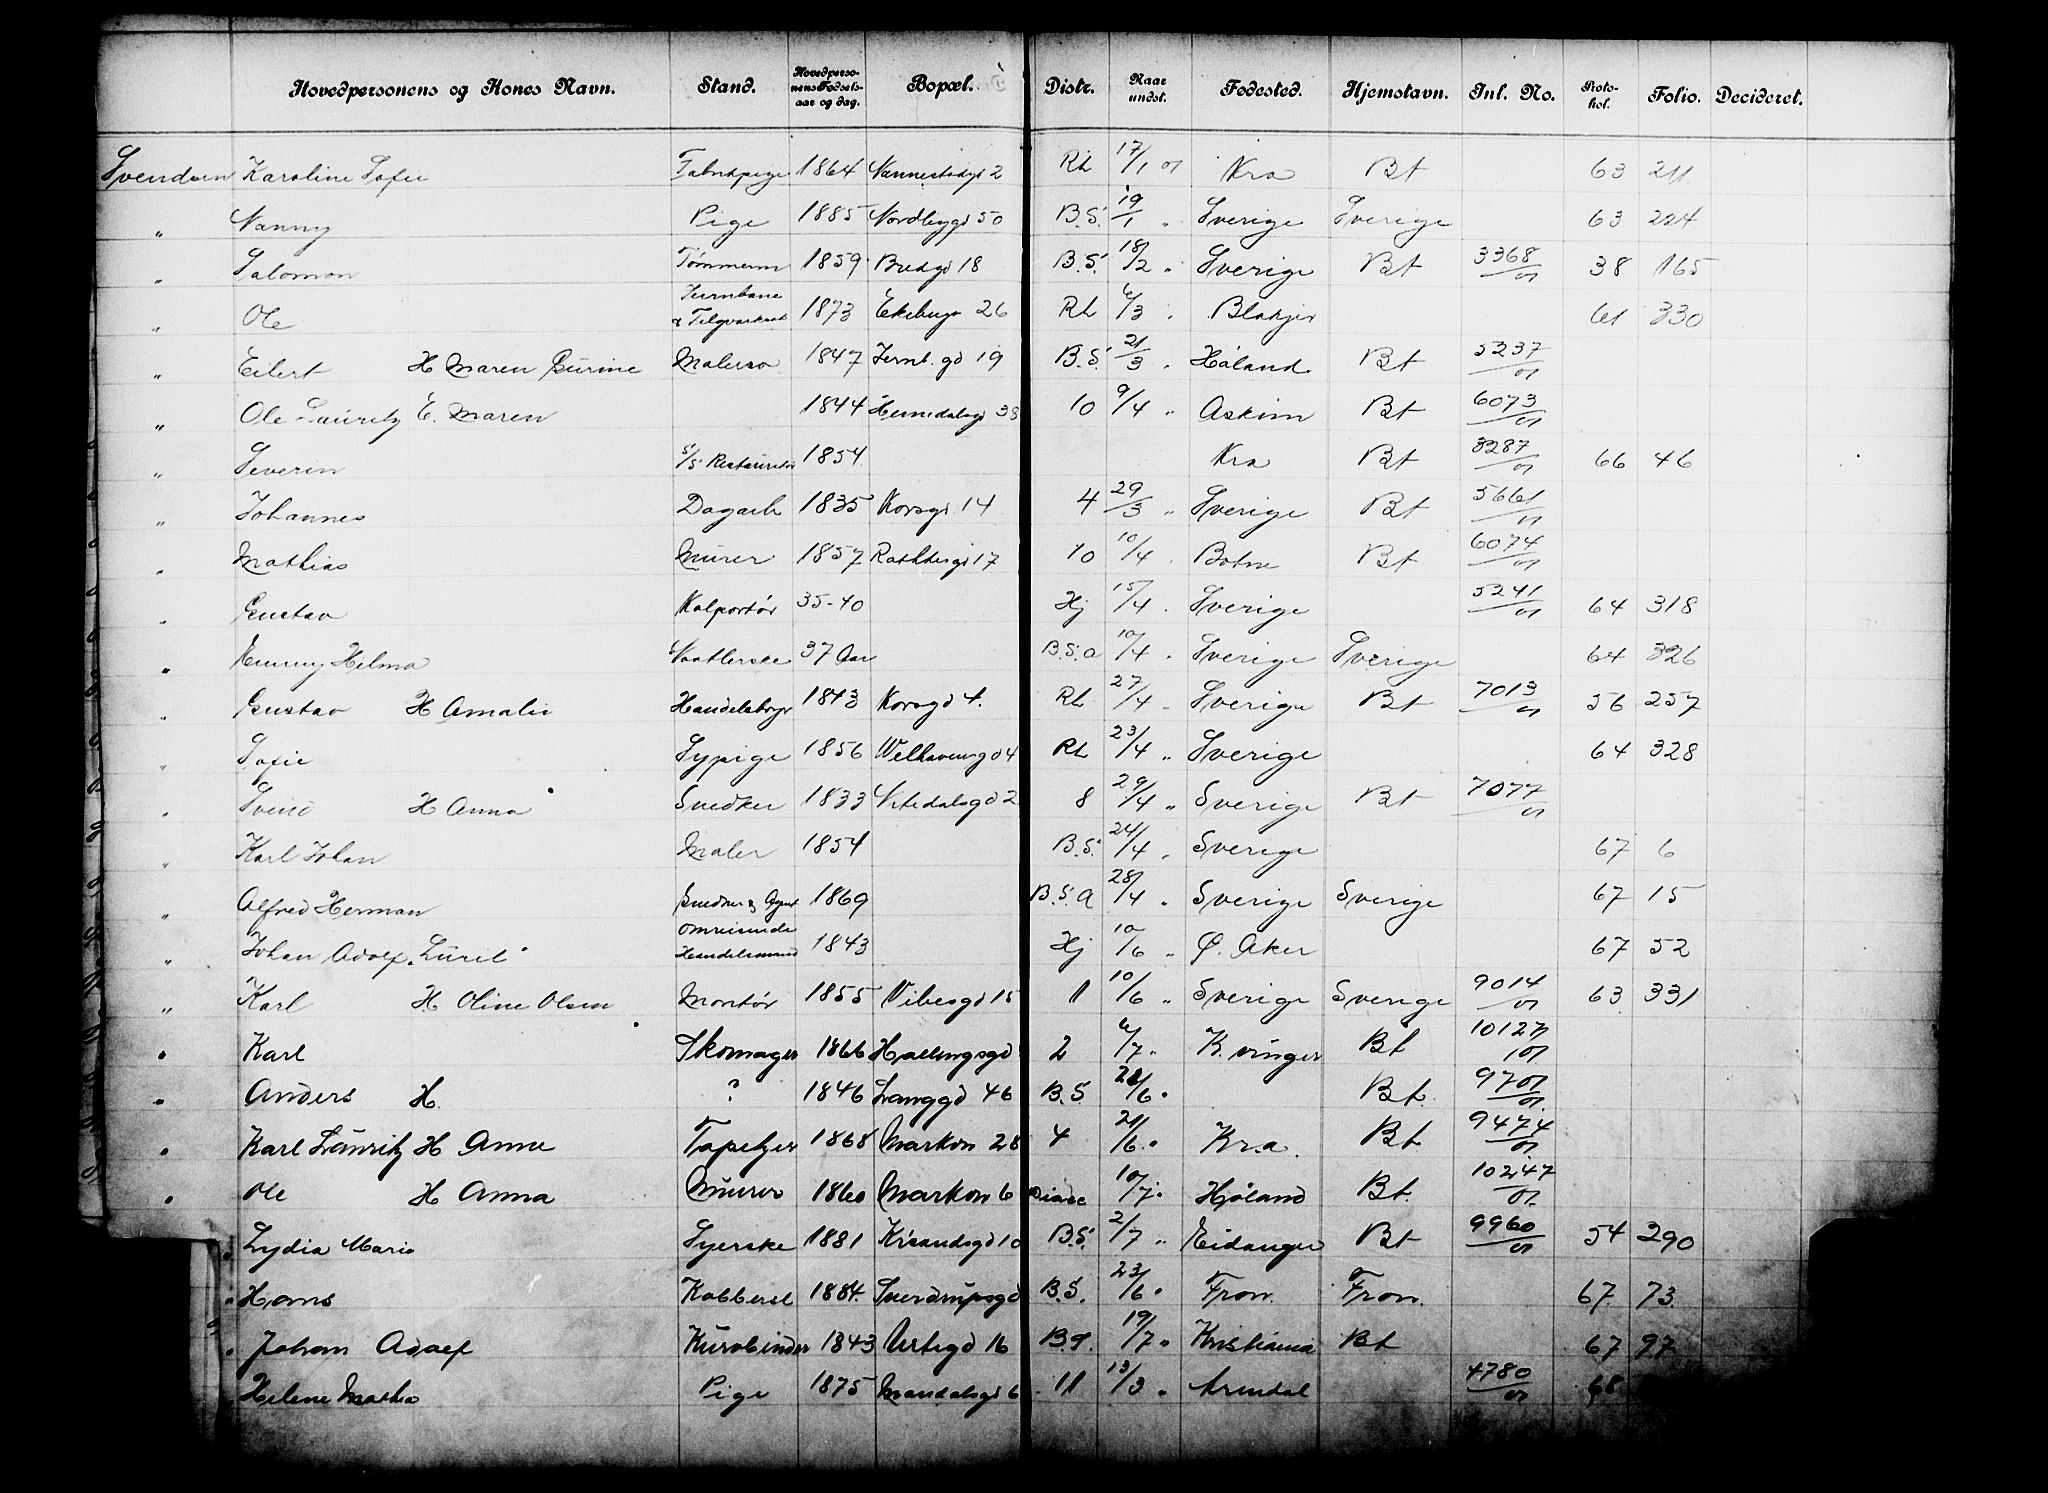 Hovedpersonens og Kones Navn. Stand. Hovedpersonens Fødselsaar og dag. Bopæl. Distr. Naar undst. Fødested. Hjemstavn. Int. No. Protokol. Folio. Decideret.
Svendsen Karoline Sofie Fabrikpige 1864 Nannestadgd 2 Rh 17/1 01 Kra Bt 63 211
" Nanny Pige 1885 Nordbygd 50 B.S. 19/1 " Sverige Sverige 63 224
" Salomon Tømmerm 1859 Bredgd 18 B.S. 18/2 " Sverige Bt 3368/01 38 165
" Ole 1873 Ekebergv 26 Rh 6/3 " Blakjer 61 330
" Eilert H Maren Gurine Malersv 1847 Jernb.gd 19 B.S. 21/3 " Høland Bt 5237/01
" Ole Lauritz E. Maren 1844 Hemedalsgd 38 10 9/4 " Askim Bt 6073/01
" Severin S/S Restauratør 1854 Kra Bt 3287/01 66 46
" Johannes Dagarb 1835 Korsgd 14 4 29/3 " Sverige Bt 5661/01
" Mathias Murer 1857 Rathkesgd 17 10 10/4 " Botne Bt 6074/01
" Gustav Kolportør 35-40 Hj 15/4 " Sverige 5241/01 64 318
" Hilma Vaatlerske 37 Aar B.S.a 10/4 " Sverige Sverige 64 326
" Gustav H Amalie Handelsbgr 1843 Korsgd 4. Rh 27/4 " Sverige Bt 7013/01 56 257
" Sofie Sypige 1856 Welhavensgd 4 Rh 23/4 " Sverige 64 328
" Svend H Anna Snedker 1833 Nitedalsgd 2 8 29/4 " Sverige Bt 7077/01
" Karl Johan Maler 1854 B.S. 24/4 " Sverige 67 6
" Alfred Herman Snedker & Agent 1869 B.S.A 28/4 " Sverige Sverige 67 15
" Johan Adolf "Luril" omreisende Handelsmand 1843 Hj 10/6 " Ø. Aker 67 52
" Karl H. Oline Olsen Montør 1855 Vibesgd 15 11 10/6 " Sverige Sverige 9014/01 63 331
" Karl Skomager 1866 Hallingsgd 2 6/7 " K.vinger Bt 10127/01
" Anders H. ? 1846 Langgd 46 B.S. /6 " Bt. 9701/01
" Karl Lauritz H Anna Tapetzer 1868 Markvn 28 4 21/6 " Kra. Bt 9474/01
" Ole H Anna Murer 1860 Markvn 6 10/7 " Høland Bt. 10247/01
" Lydia Marie Syerske 1881 Krsandsgd 10 B.S. 2/7 " Eidanger Bt 9960/01 54 290
" Hans Kobbersl 1884. Sverdrupsgd B.S. 23/6 " Fron. Fron. 67. 73.
" Johan Adolf Kurvbinder 1843 Urtegd 16 B.S. 19/7 " Kristiania Bt 67 97
Helene Mathea Pige 1875 Mandalsgd 6 11 13/3 " Arendal 4780/01 68